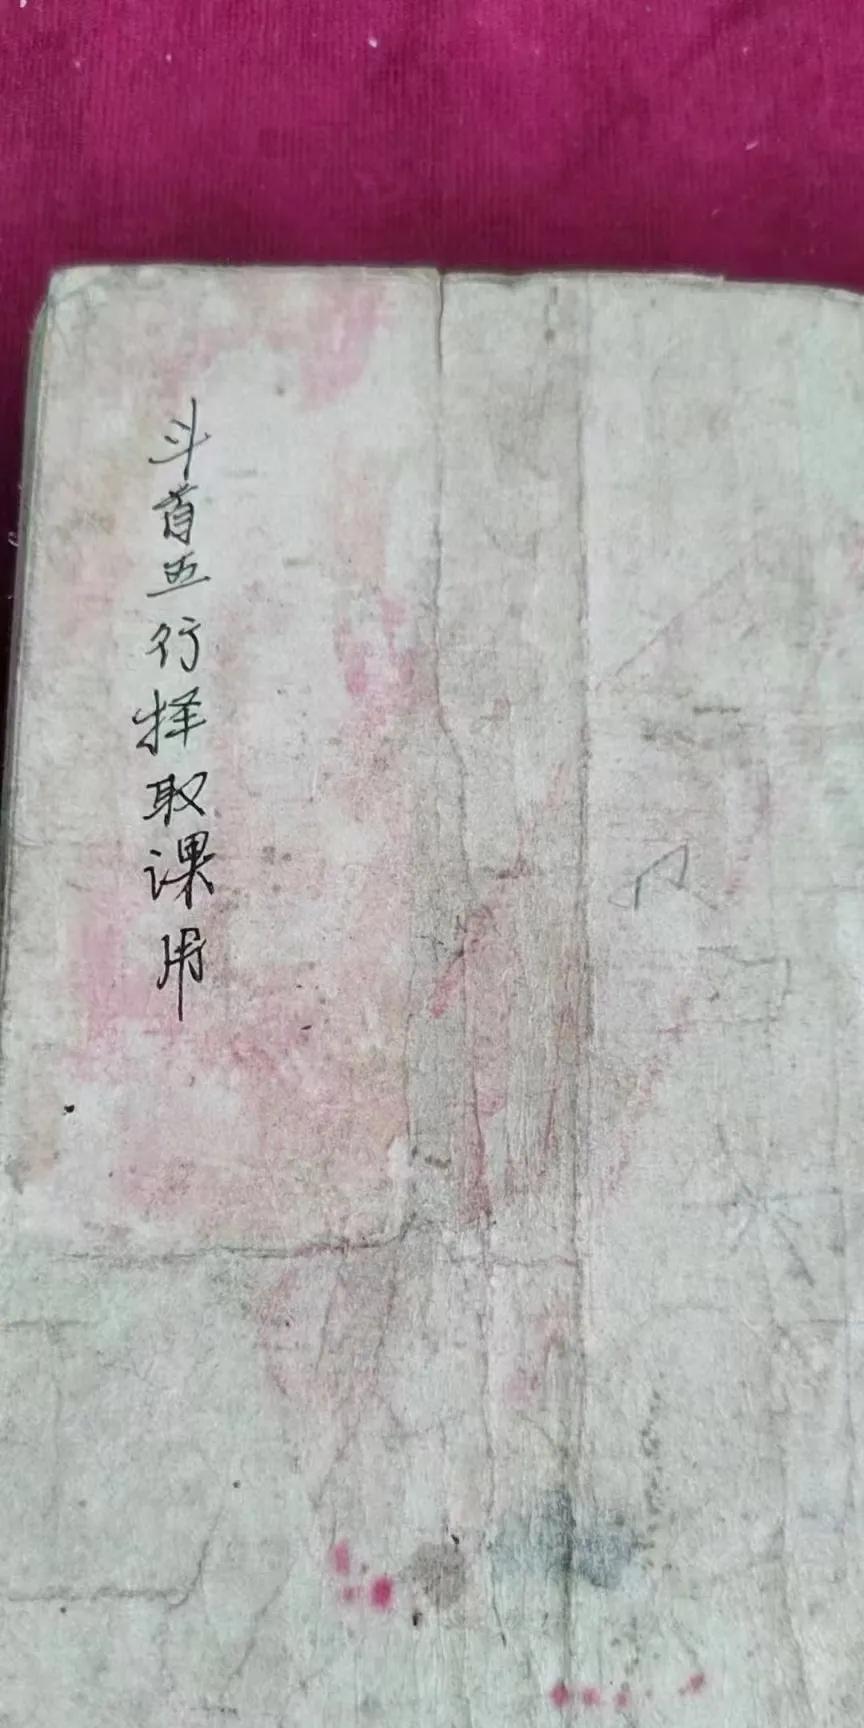 斗首五行择取课用